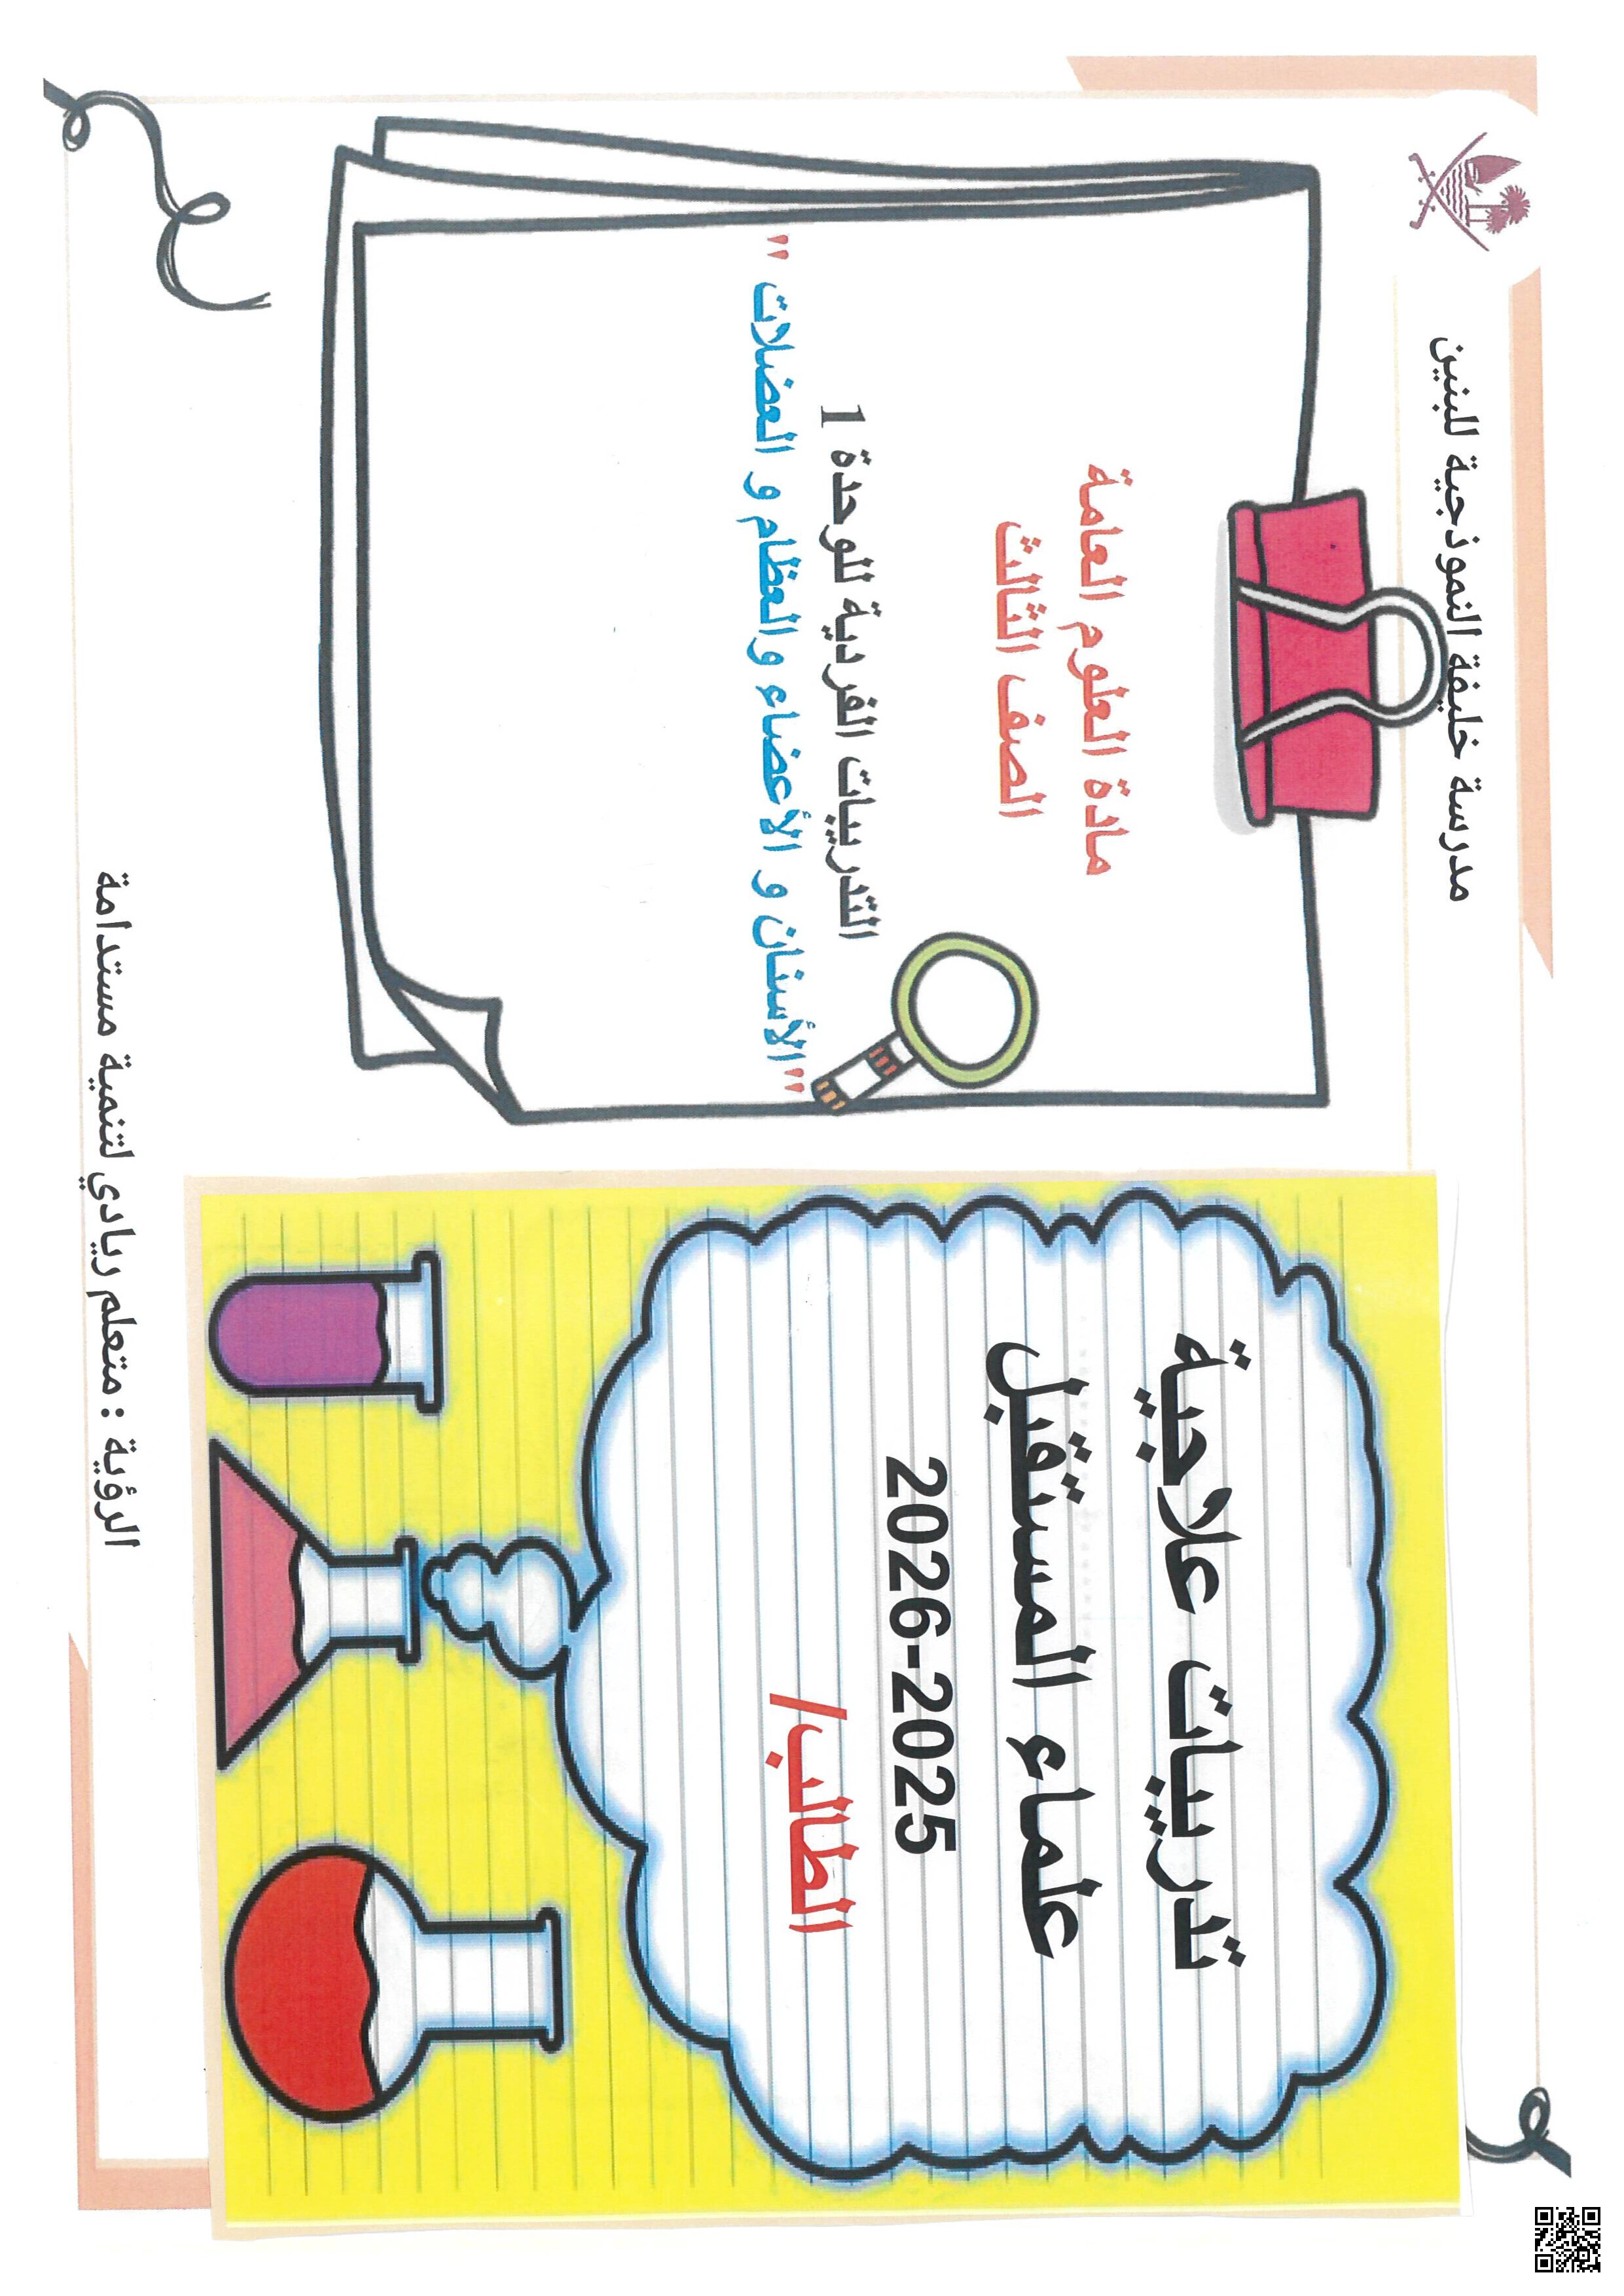 مدرسة خليفة النموذجية للبنين
تدريبات علاجية
علماء المستقبل
2025-2026
الطالب/
مادة العلوم العامة
الصف الثالث
التدريبات الفردية للوحدة 1
"الأسنان و الأعضاء والعظام و العضلات "
الرؤية : متعلم ريادي لتنمية مستدامة